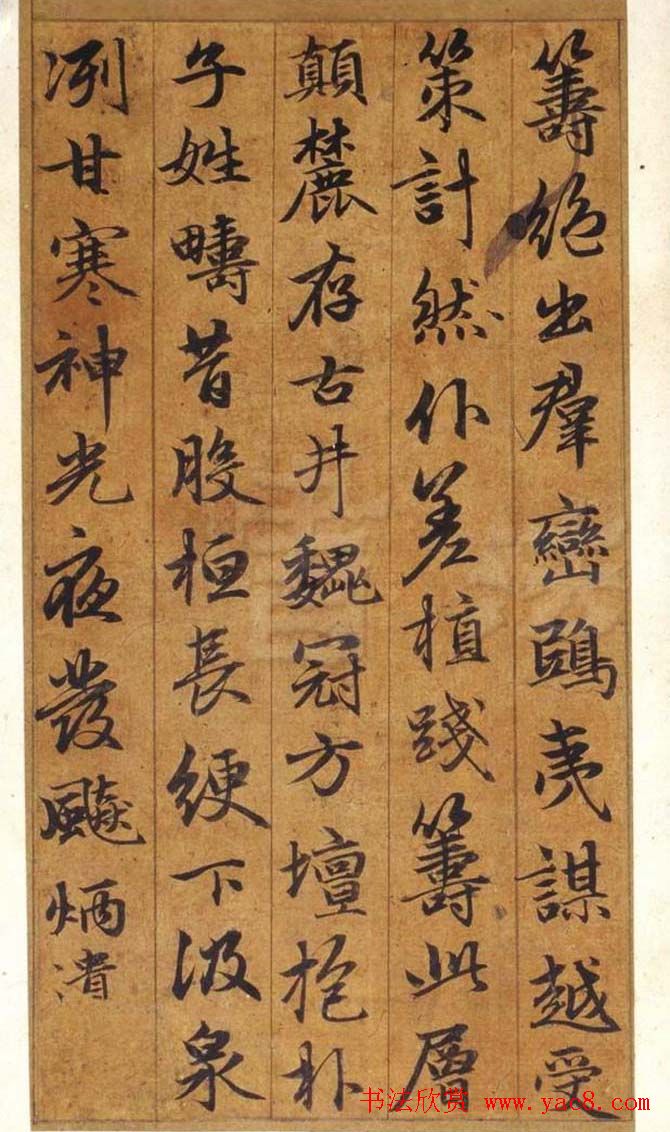 籌絕出羣巒鴟夷謀越受
策計然仆差植踐籌此層
顛麓存古井巍冠方壇抱朴
子姓疇昔股桓長綆下汲泉
冽甘寒神光夜發飈炳潰
书法欣赏 www.yac8.com